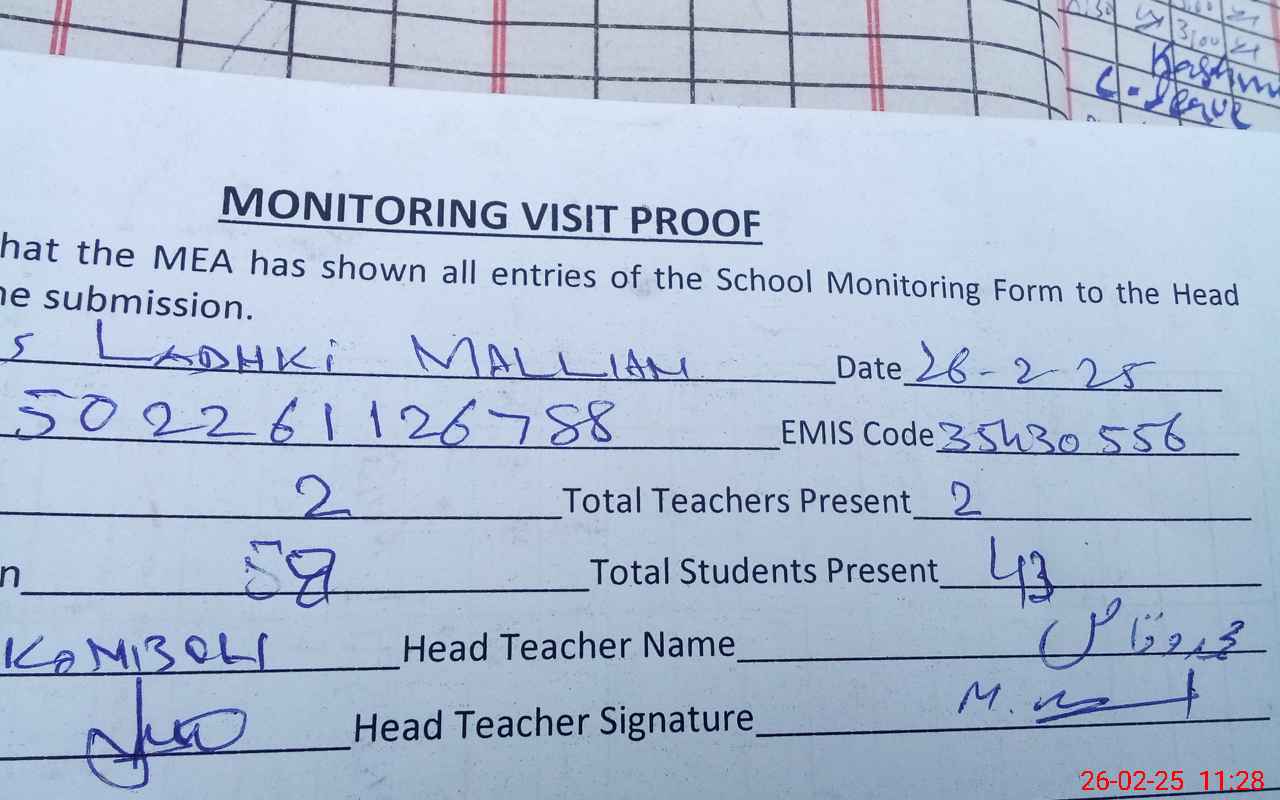 3100
Kashm
C. Leave
MONITORING VISIT PROOF
hat the MEA has shown all entries of the School Monitoring Form to the Head
ne submission.
S LADHKi MALLIAN Date 26-2-25
502261126788 EMIS Code 35430556
2 Total Teachers Present 2
n 58 Total Students Present 43
KOMIBOLI Head Teacher Name
Head Teacher Signature M.
26-02-25 11:28